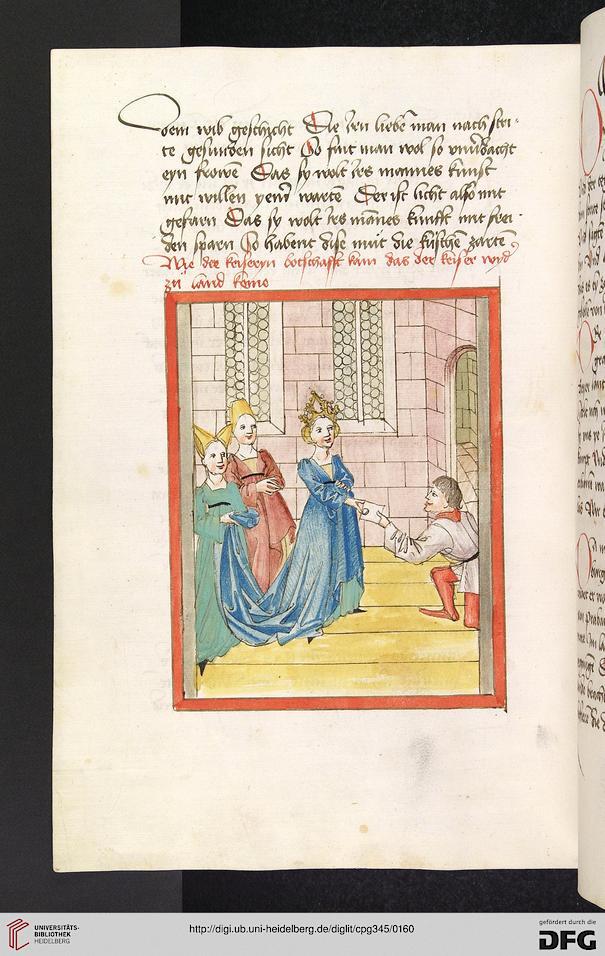 Dem wib geschicht Die irn liebē man nach stri⸗
te gesunden sicht So fint man wol so vnuerdacht
eyn frowē Das sy wolt irs mannes kunst
mit willen yem̄ wartē Der ist licht also mit
gefarn Das sy wolt irs mānes kunfft mit frei⸗
den sparn So habent dise mut die kuschē zartē
Wie der keyseryn botschafft kam das der keiser wid͛
zu land keme
UNIVERSITÄTS-
BIBLIOTHEK
HEIDELBERG
http://digi.ub.uni-heidelberg.de/diglit/cpg345/0160
gefördert durch die
DFG